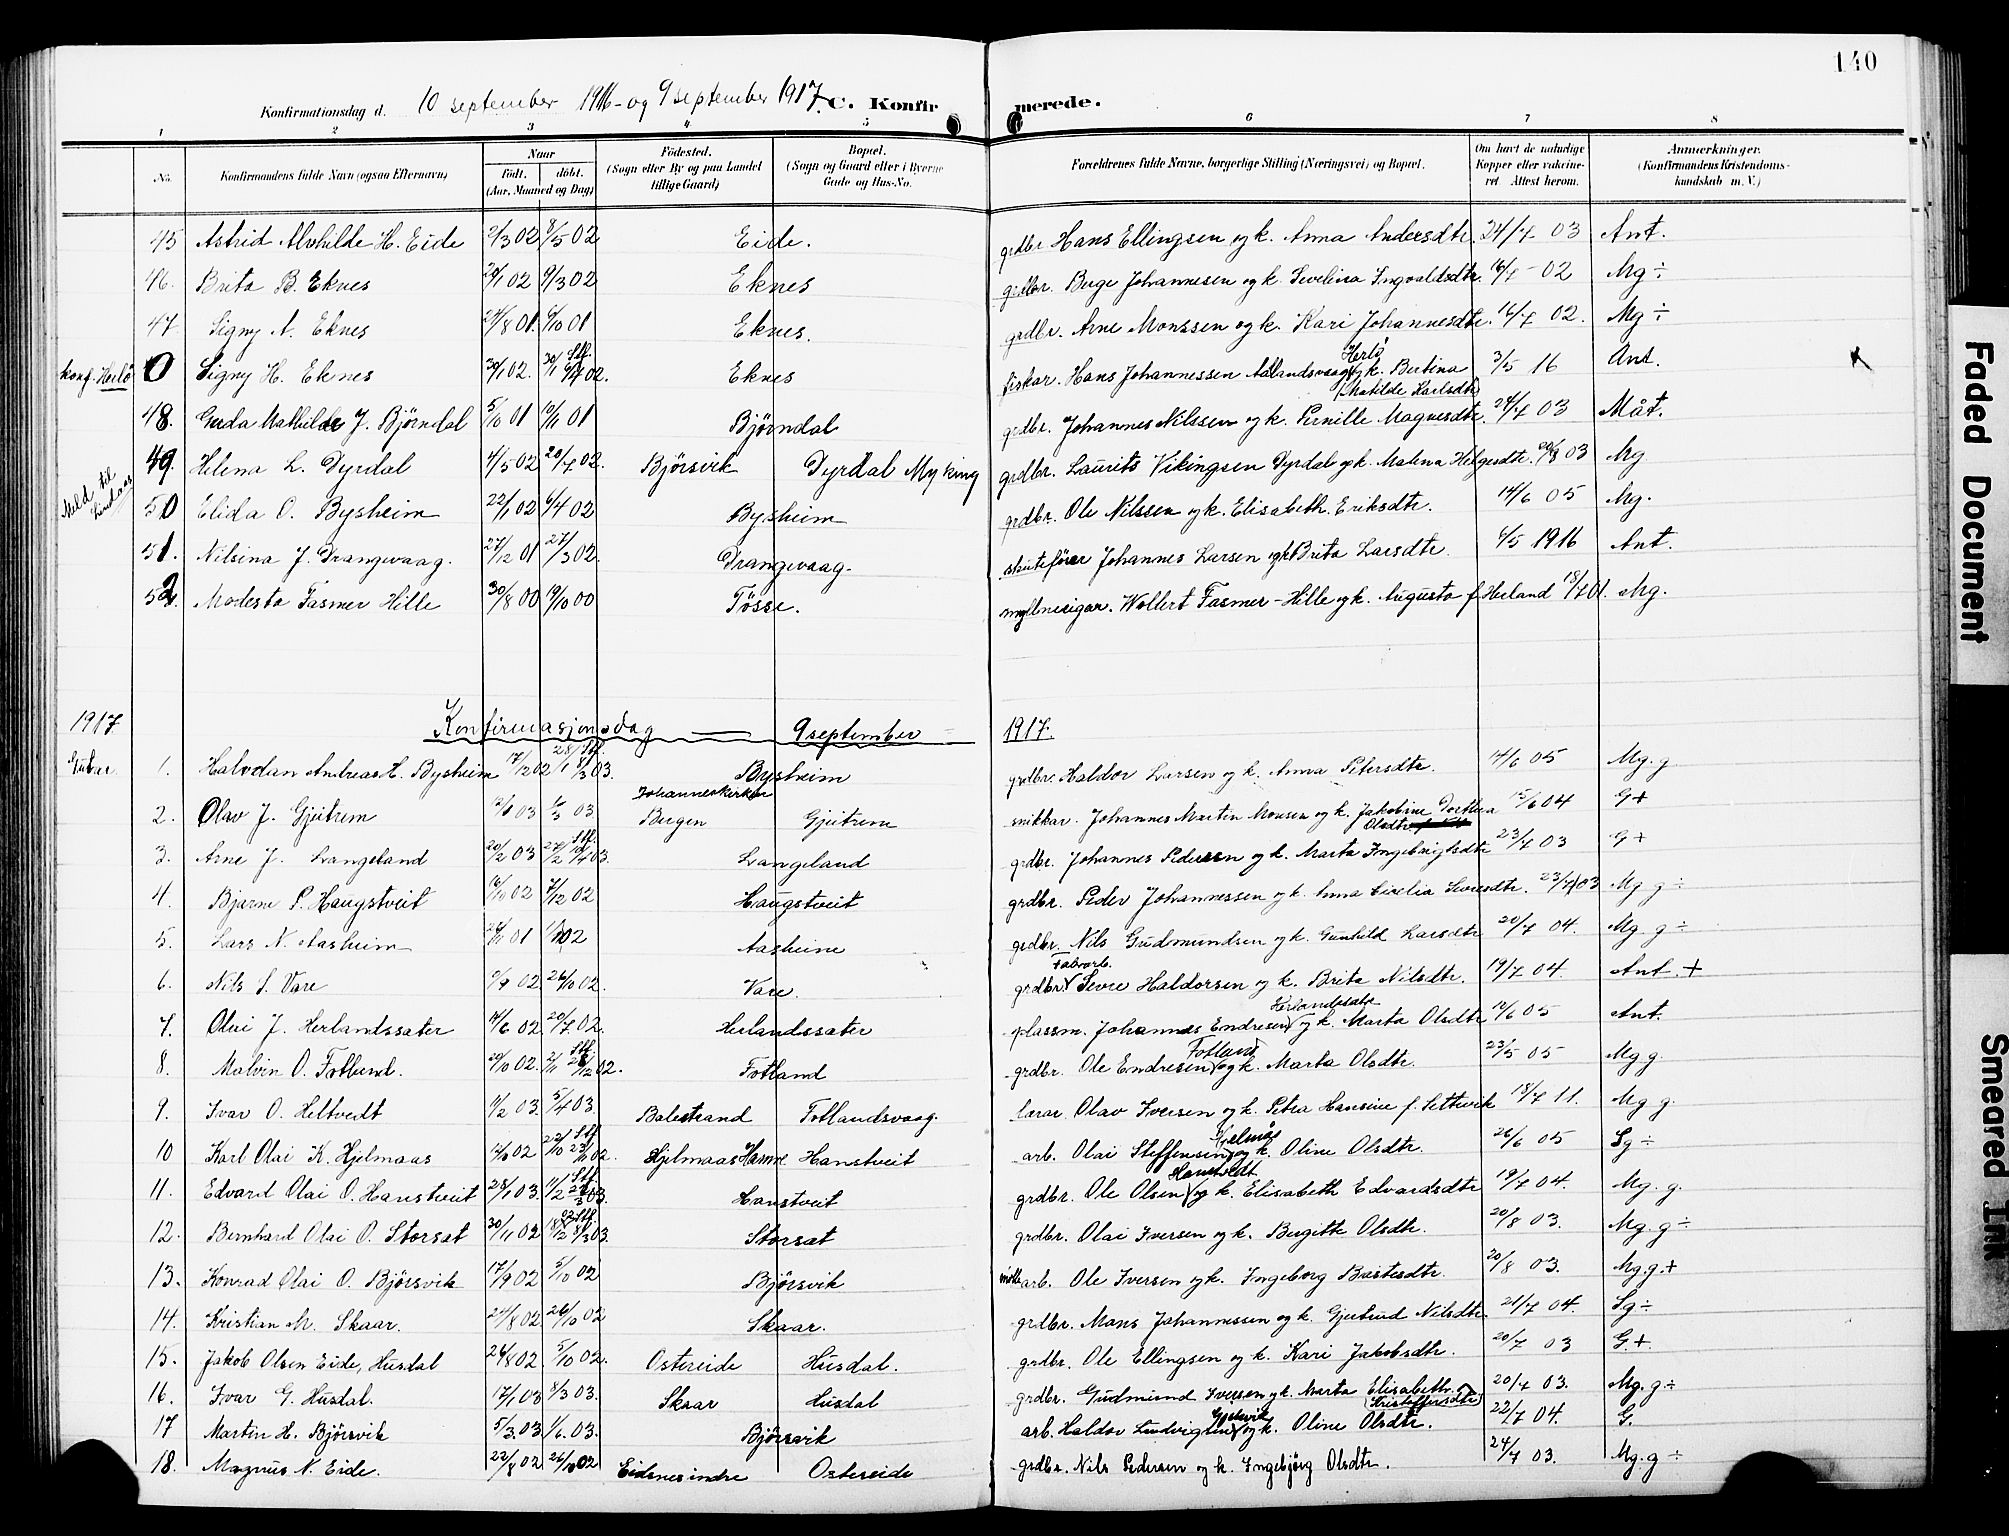 140
Konfirmationsdag d. 10 september 1916 - og 9 september 1917. C. Konfirmerede.
1 2 3 4 5 6 7 8
No. Konfirmandens fulde Navn (ogsaa Efternavn) Naar Født. døbt. (Aar, Maaned og Dag) Fødested. (Sogn eller By og paa Landet tillige Gaard) Bopæl. (Sogn og Gaard eller i Byerne Gade og Hus-No. Forældrenes fulde Navne, borgerlige Stilling (Næringsvei) og Bopæl. Om havt de naturlige Kopper eller vaccineret. Attest herom. Anmærkninger. (Konfirmandens Kristendomskundskab m. V.)
45 Astrid Alvhilde H. Eide 2/3 02 8/5 02 Eide. grdbr. Hans Ellingsen og k. Anna Andersdtr. 24/7 03 Ant.
46. Brita B. Eknes 20/1 02 9/3 02 Eknes grdbr. Berge Johannesen og k. Sevelina Ingvaldsdtr. 16/7 - 02 Mg ÷
47 Signy A. Eknes 24/8 01. 6/10 01 Eknes. grdbr. Arne Monssen og k. Kari Johannesdtr. 16/7 02. Mg ÷
konf. Herlö 0 Signy H. Eknes 30/1 02. 30/1 Stf. 02. Eknes fiskar. Hans Johannessen Aalandsvaag Herlö og k. Bertina (Matilde Karlsdtr) 3/5 16 Ant.
48. Guda Mathilde J. Björndal 5/10 01 10/11 01 Björndal grdbr. Johannes Nilssen og k. Pernille Magnesdtr. 24/7 03 Måt.
49. Helena L. Dyrdal 4/5 02 20/7 02. Björsvik Dyrdal Myking grdbr. Laurits Vikingsen Dyrdal og k. Malena Helgesdtr. 20/8 03 Mg
Meld til Lindaas 50 Elida O. Bysheim 22/1 02 6/4 02 Bysheim grdbr. Ole Nilssen og k. Elisabeth Eriksdtr. 14/6 05 Mg.
51. Nilsina J. Drangevaag. 27/12 01 27/3 02. Drangevaag. skuteförer Johannes Larsen og k Brita Larsdtr. 4/5 1916 Ant.
52. Modesta Fasmer Hille 30/8 00 19/10 00 Tösse. Wollert Fasmer - Hille og k. Augusta f. Herland 18/7 01. Mg.
1917. Konfirmasjonsdag — 9 september 1917.
Gutar. 1. Halvdan Andreas H. Bysheim 17/12 02 28/1 Stf. 03. Bysheim grdbr. Haldor Larsen og k. Anna Petersdtr. 14/6 05 Mg. g
2. Olav J. Gjeitrem 03 03 Johanneskirken Bergen Gjeitrem snikkar. Johannes Martin Monsen og k. Jakobine Dorthea Olsdtr. 15/6 04 G +
3. Arne J. Langeland 20/2 03 27/2 Stf. 03. Langeland grdbr. Johannes Pedersen og k. Marta Ingebrigtsdtr 23/7 03 G +
4. Bjarne P. Haugstveit 16/10 02 7/12 02 Haugstveit grdbr. Peder Johannessen og k. Anna 23/7 03 Mg g ÷
5. Lars N. Aasheim 01 02 Aasheim grdbr. Nils Gudmundsen og k. Gunhild Larsdtr 20/7 04. Mg. g ÷
6. Nils S. Vare 9/9 02 26/10 02. Vare. grdbr. Fabrarb. Sevre Haldorsen og k. Brita Nilsdtr. 19/7 04. Ant. +
7. Olai J. Herlandssater 14/6 02 20/7 02. Herlandssater plassm. Johannes Endresen Herlandssatr og k. Marta Olsdtr 12/6 05 Ant.
8. Malvin O. Fotland. 20/10 02. 2/11 Stf. 02. Fotland grdbr. Ole Endresen Fotland og k. Marta Olsdtr. 23/5 05 Mg g.
9. Ivar O. Heltvedt 11/2 03. 5/4 03. Balestrand Fotlandsvaag. lærar. Olav Iversen og k. Petra Hansine f. Settevik 18/7 11. Mg g.
10 Karl Olai K. Hjelmaas 14/9 02 22/10 Stf. 02. Hjelmaas Hamre Hanstveit arb. Olai Steffensen Hjelmås og k. Oline Olsdtr. 26/6 05 Sg ÷
11. Edvard Olai O. Hanstveit 28/1 03. 11/2 Stf. 03. Hanstveit grdbr. Ole Olsen Hanstvedt og k. Elisabeth Edvardsdtr 19/7 04. Mg. g.
12. Bernhard Olai O. Storsat 30/11 02 18/12 02 Stf. 8/3 03. Storsat grdbr. Olai Iversen og k. Bergitte Olsdtr. 20/8 03. Mg. g ÷
13. Konrad Olai O. Björsvik 17/9 02 5/10 02 Björsvik arb. Ole Iversen og k. Ingeborg Bastesdtr. 20/8 03. Mg. g. +
14. Kristian M. Skaar. 24/8 02. 26/10 02 Skaar. grdbr. Mons Johannessen og k. Gjertrud Nilsdtr. 21/7 04. Sg ÷
15. Jakob Olsen Eide, Husdal 24/8 02. 5/10 02. Ostereide Husdal. grdbr. Ole Ellingsen og k. Kari Jakobsdtr. 20/7 03 G. +
16. Ivar G. Husdal. 17/1 03 8/3 03. Skaar Husdal grdbr. Gudmund Iversen og k. Marta Elisabeth (Kristoffersdtr) 20/7 03. Mg. g ÷
17 Martin H. Björsvik 5/3 03 1/6. 03. Björsvik arb. Haldor Ludvigsen Gjelsvik og k. Oline Olsdtr. 22/7 04. G.
18. Magnus N. Eide. 22/8 02 26/10 02 Eidsnes indre Ostereide grdbr. Nils Pedersen og k. Ingebjörg Olsdtr. 24/7 03. Mg. g ÷
Faded Document
Smeared Ink